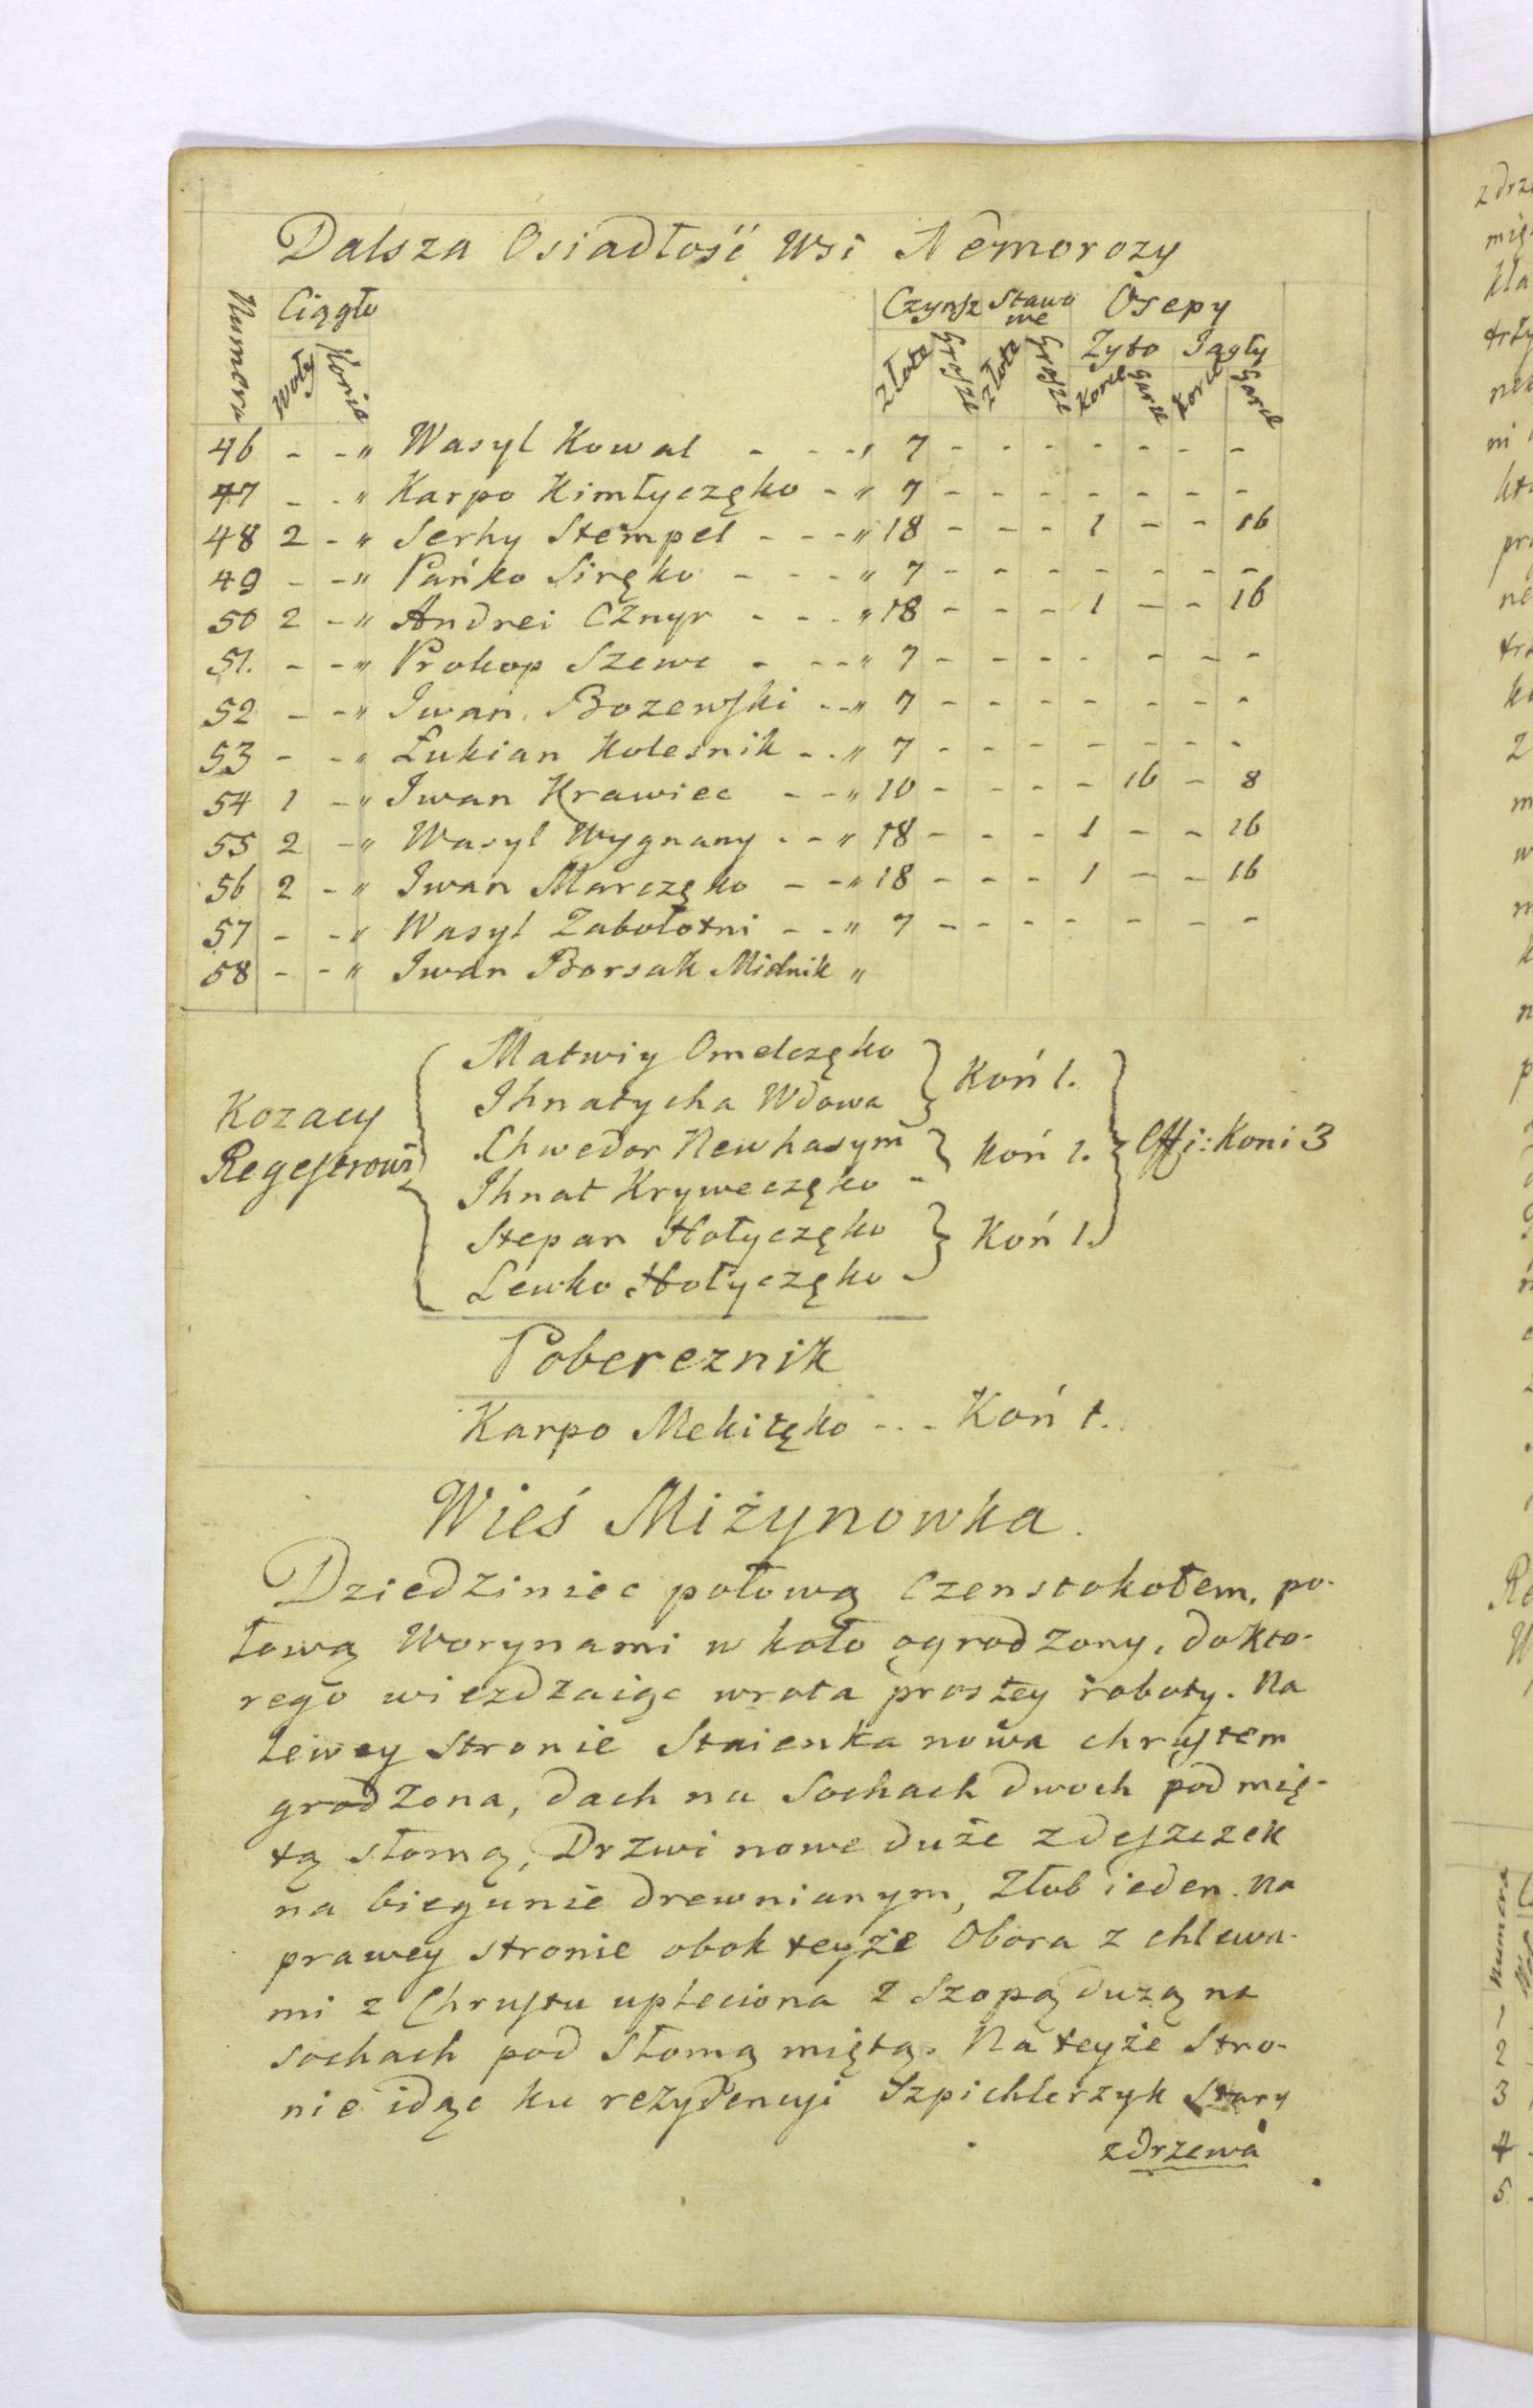 Dalsza Osiadłość Wsi Nemorozy
Numera Ciągło Czynsz Stawowe Osepy
Woły Konie Złote Grosze Złote Grosze Żyto Jagły
Korce Garce Korce Garce
46 - - " Wasyl Kowal - - - " 7 - - - - - - -
47 - - " Karpo Kimłyczęko - " 7 - - - - - - -
48 2 - " Serhy Stempel - - - " 18 - - - 1 - - 16
49 - - " Pańko Siręko - - - " 7 - - - - - - -
50 2 - " Andrei Cznyr - - - " 18 - - - 1 - - 16
51. - - " Prokop Szewc - - - " 7 - - - - - - -
52 - - " Iwan Bozewski - - " 7 - - - - - - -
53 - - " Łukian Kolesnik - - " 7 - - - - - - -
54 1 - " Iwan Krawiec - - " 10 - - - - 16 - 8
55 2 - " Wasyl Wygnany - - " 18 - - - 1 - - 16
56 2 - " Iwan Marczęko - - " 18 - - - 1 - - 16
57 - - " Wasyl Zabołotni - - " 7 - - - - - - -
58 - - " Iwan Borsak Midnik "
Kozacy Regestrowi
Matwiy Omelczęko
Ihnatycha Wdowa
Koń 1.
Chwedor Newhasym
Ihnat Kryweczęko -
Koń 1.
Stepan Hołyczęko
Lewko Hołyczęko
Koń 1.
Effi: Koni 3
Pobereznik
Karpo Mekitęko - - - Koń 1.
Wieś Miżynowka.
Dziedziniec połową Czenstokołem, po-
łową Worynami w koło ogrodzony, dokto-
rego wiezdzaiąc wrota prostey roboty. Na
Lewey Stronie Staienka nowa chrustem
grodzona, dach na Sochach dwoch pod mię-
tą słomą, Drzwi nowe duże zdeszczek
na biegunie drewnianym, Złob ieden. Na
prawey stronie obok teyże Obora z chlewa-
mi z Chrustu upleciona z Szopą dużą na
sochach pod Słomą miętą. Na teyże Stro-
nie idąc ku rezydencyi Szpichlerzyk Stary
zdrzewa